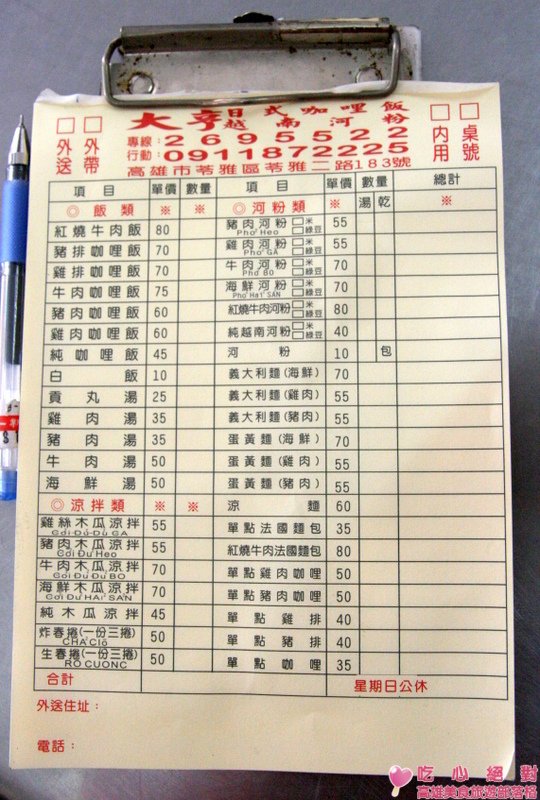 大亨日式咖哩飯
越南河粉
□外送 □外帶
專線：2695522
行動：0911872225
高雄市苓雅區苓雅二路183號
□內用 □桌號
項目 單價 數量 項目 單價 數量 總計
湯 乾
◎飯類 ※ ※ ◎河粉類 ※ ※
紅燒牛肉飯 80 豬肉河粉 □米 □綠豆 55
Pho Heo
豬排咖哩飯 70 雞肉河粉 □米 □綠豆 55
Pho GA
雞排咖哩飯 70 牛肉河粉 □米 □綠豆 70
Pho BO
牛肉咖哩飯 75 海鮮河粉 □米 □綠豆 70
Pho HaI SAN
豬肉咖哩飯 60 紅燒牛肉河粉 □米 □綠豆 80
雞肉咖哩飯 60 純越南河粉 □米 □綠豆 40
純咖哩飯 45 河粉 10 包
白飯 10 義大利麵(海鮮) 70
貢丸湯 25 義大利麵(雞肉) 55
雞肉湯 35 義大利麵(豬肉) 55
豬肉湯 35 蛋黃麵(海鮮) 70
牛肉湯 50 蛋黃麵(雞肉) 55
海鮮湯 50 蛋黃麵(豬肉) 55
◎涼拌類 ※ ※ 涼麵 60
雞絲木瓜涼拌 55 單點法國麵包 35
Gỏi Đu Đủ GA
豬肉木瓜涼拌 55 紅燒牛肉法國麵包 80
Gỏi Đu Đủ Heo
牛肉木瓜涼拌 70 單點雞肉咖哩 50
Gỏi Đu Đủ BO
海鮮木瓜涼拌 70 單點豬肉咖哩 50
Gỏi Đu Đủ HAI SAN
純木瓜涼拌 45 單點雞排 40
炸春捲(一份三捲) 50 單點豬排 40
CHẢ GIÒ
生春捲(一份三捲) 50 單點咖哩 35
RO CUONC
合計 星期日公休
外送住址：
電話：
吃心絕對
高雄美食旅遊部落格